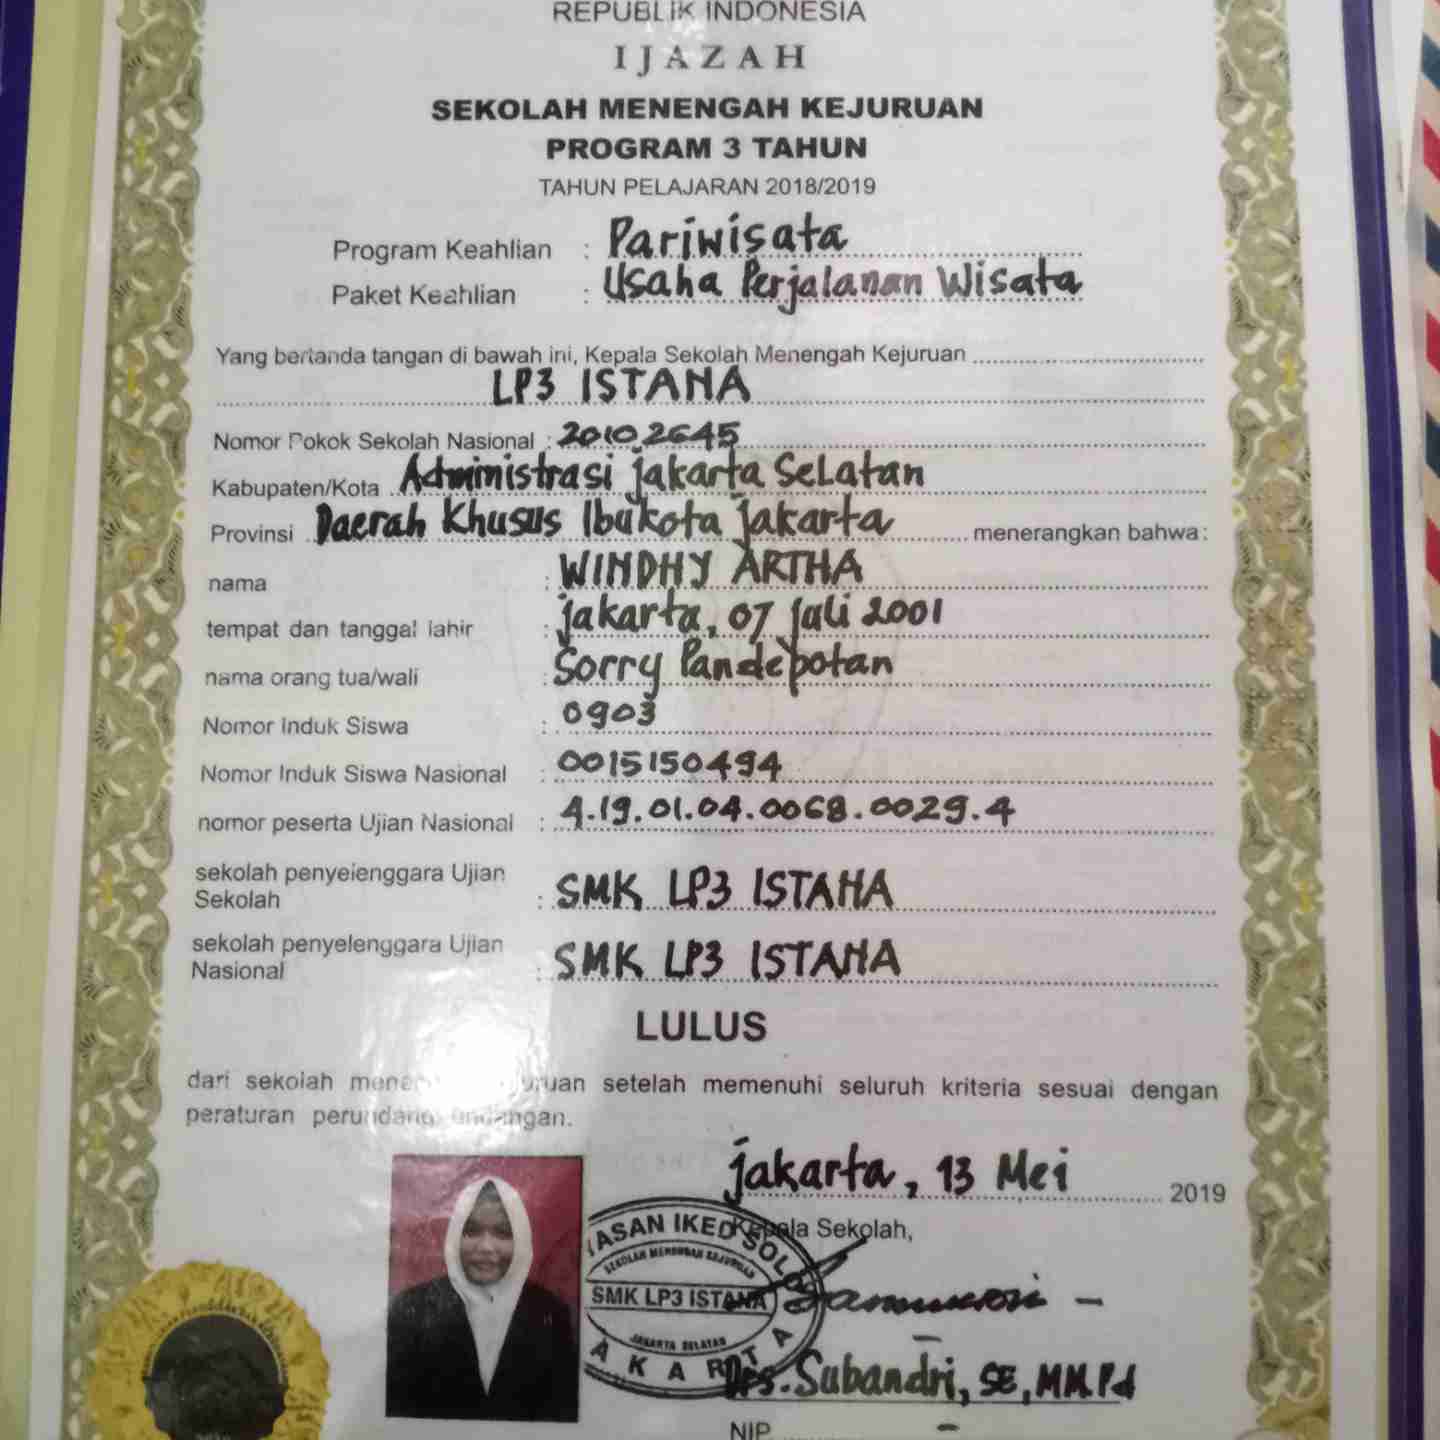 REPUBLIK INDONESIA
IJAZAH
SEKOLAH MENENGAH KEJURUAN
PROGRAM 3 TAHUN
TAHUN PELAJARAN 2018/2019
Program Keahlian : Pariwisata
Paket Keahlian : Usaha Perjalanan Wisata
Yang bertanda tangan di bawah ini, Kepala Sekolah Menengah Kejuruan
LP3 ISTANA
Nomor Pokok Sekolah Nasional : 20102645
Kabupaten/Kota Administrasi jakarta Selatan
Provinsi Daerah Khusus Ibukota jakarta menerangkan bahwa:
nama : WINDHY ARTHA
tempat dan tanggal lahir : jakarta, 07 juli 2001
nama orang tua/wali : Sorry Pandepotan
Nomor Induk Siswa : 0903
Nomor Induk Siswa Nasional : 0015150494
nomor peserta Ujian Nasional : 4.19.01.04.0068.0029.4
sekolah penyelenggara Ujian
Sekolah : SMK LP3 ISTANA
sekolah penyelenggara Ujian
Nasional : SMK LP3 ISTANA
LULUS
dari sekolah setelah memenuhi seluruh kriteria sesuai dengan
peraturan
jakarta, 13 Mei 2019
Kepala Sekolah,
IKED SOLO
SEKOLAH MENENGAH KEJURUAN
SMK LP3 ISTANA
JAKARTA SELATAN
Drs. Subandri, SE, MM.Pd
NIP. -